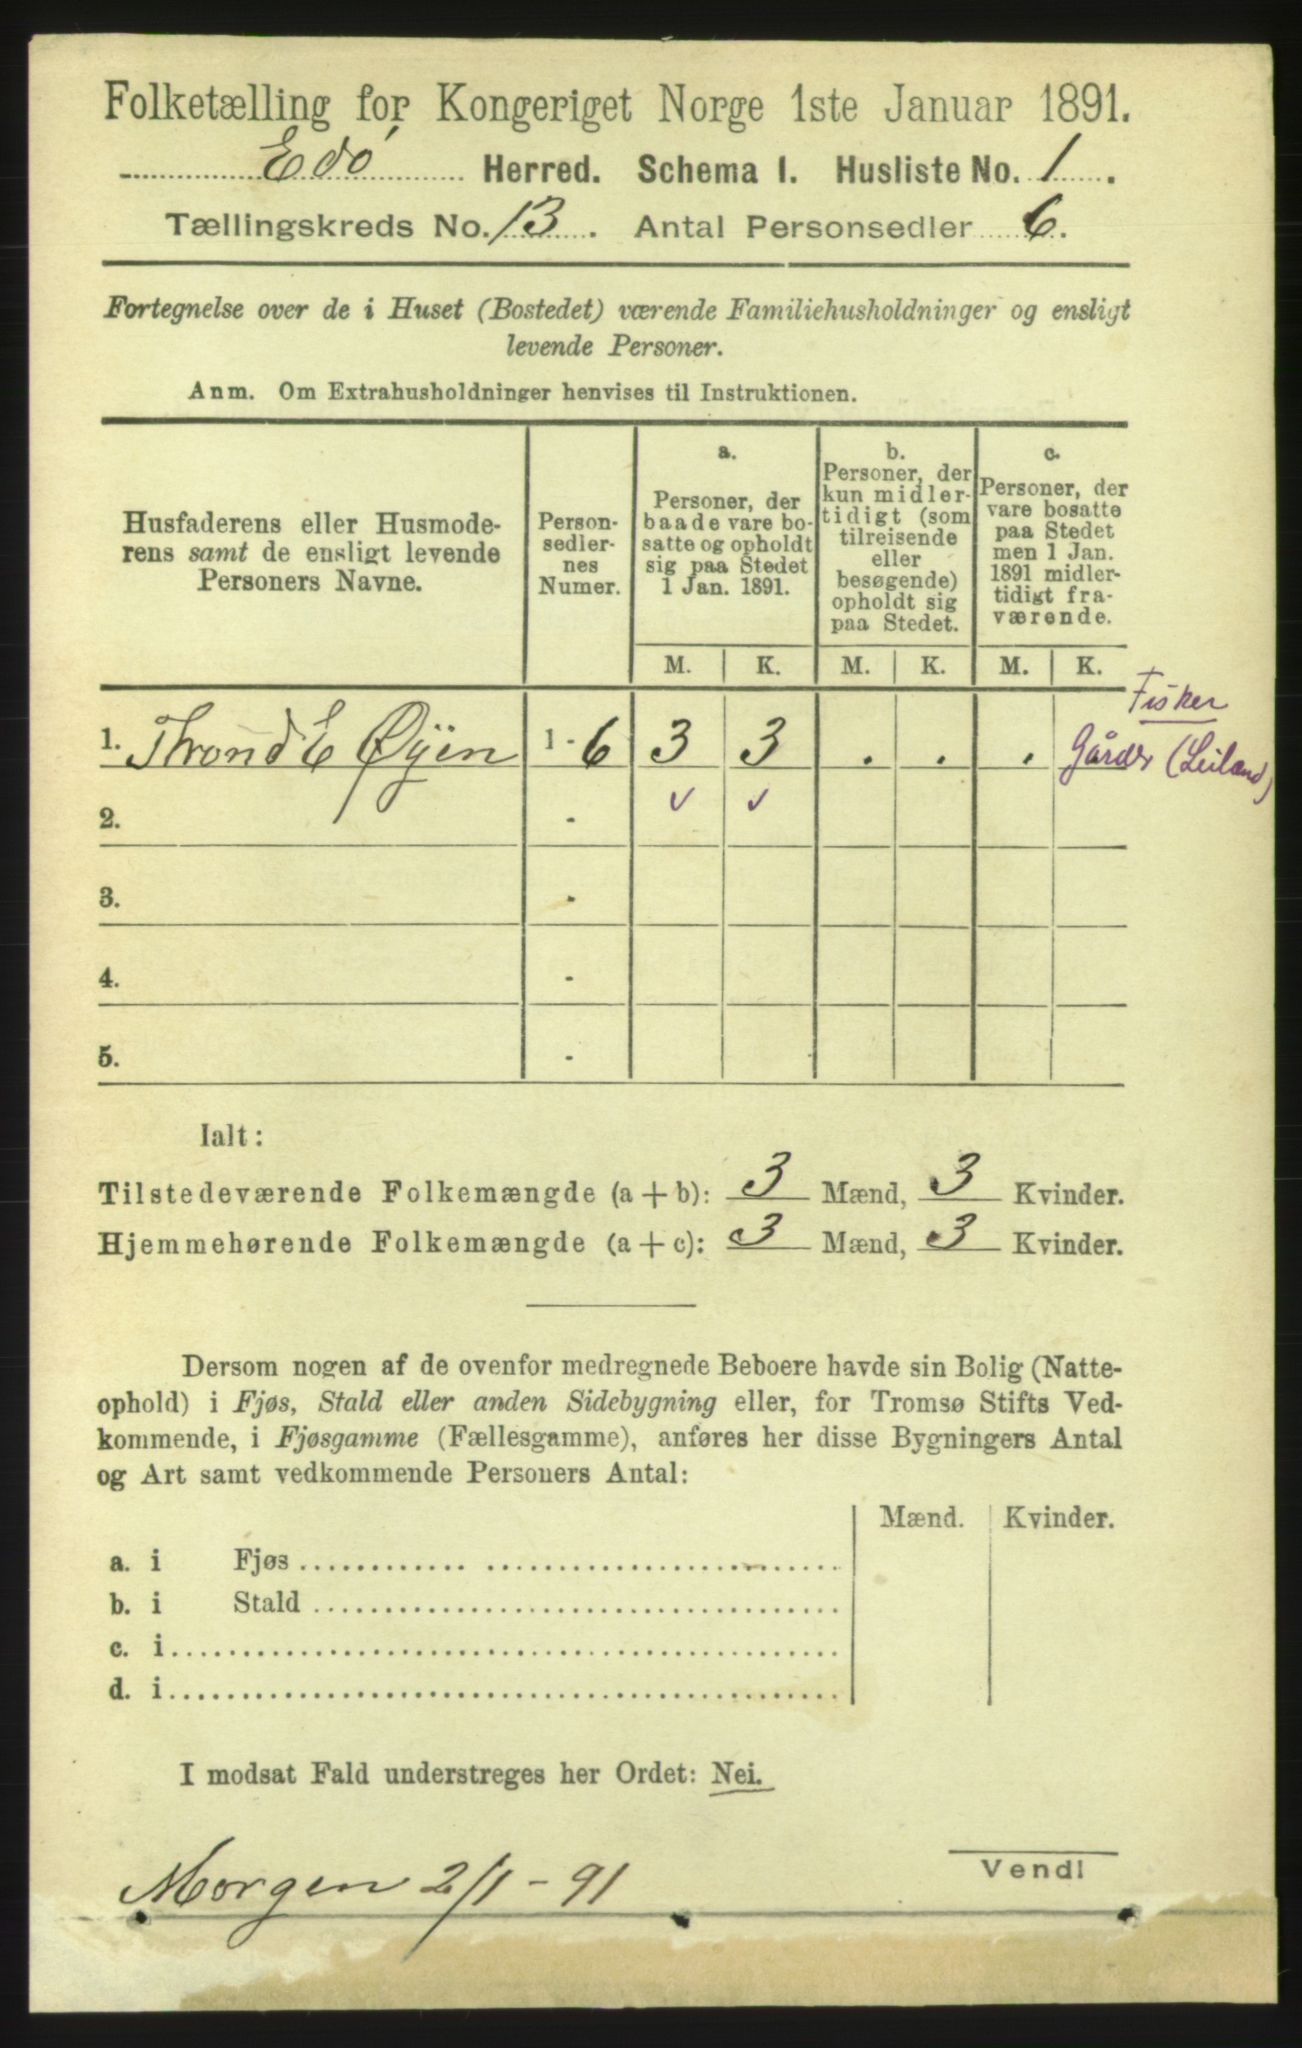 Folketælling for Kongeriget Norge 1ste Januar 1891.
Edø Herred. Schema I. Husliste No. 1.
Tællingskreds No. 13. Antal Personsedler 6.
Fortegnelse over de i Huset (Bostedet) værende Familiehusholdninger og ensligt
levende Personer.
Anm. Om Extrahusholdninger henvises til Instruktionen.
Husfaderens eller Husmode-
rens samt de ensligt levende
Personers Navne.
Person-
sedler-
nes
Numer.
a.
Personer, der
baade vare bo-
satte og opholdt
sig paa Stedet
1 Jan. 1891.
b.
Personer, der
kun midler-
tidigt (som
tilreisende
eller
besøgende)
opholdt sig
paa Stedet.
c.
Personer, der
vare bosatte
paa Stedet
men 1 Jan.
1891 midler-
tidigt fra-
værende.
M. K. M. K. M. K.
Fisker
1. Thrond E Øyen 1 - 6 3 3 . . . Gårdbr (Leiland)
2. - ✓ ✓
3. -
4. -
5. -
Ialt:
Tilstedeværende Folkemængde (a + b): 3 Mænd, 3 Kvinder.
Hjemmehørende Folkemængde (a + c): 3 Mænd, 3 Kvinder.
Dersom nogen af de ovenfor medregnede Beboere havde sin Bolig (Natte-
ophold) i Fjøs, Stald eller anden Sidebygning eller, for Tromsø Stifts Ved-
kommende, i Fjøsgamme (Fællesgamme), anføres her disse Bygningers Antal
og Art samt vedkommende Personers Antal:
Mænd. Kvinder.
a. i Fjøs
b. i Stald
c. i
d. i
I modsat Fald understreges her Ordet: Nei.
Morgen 2/1 - 91
Vend!